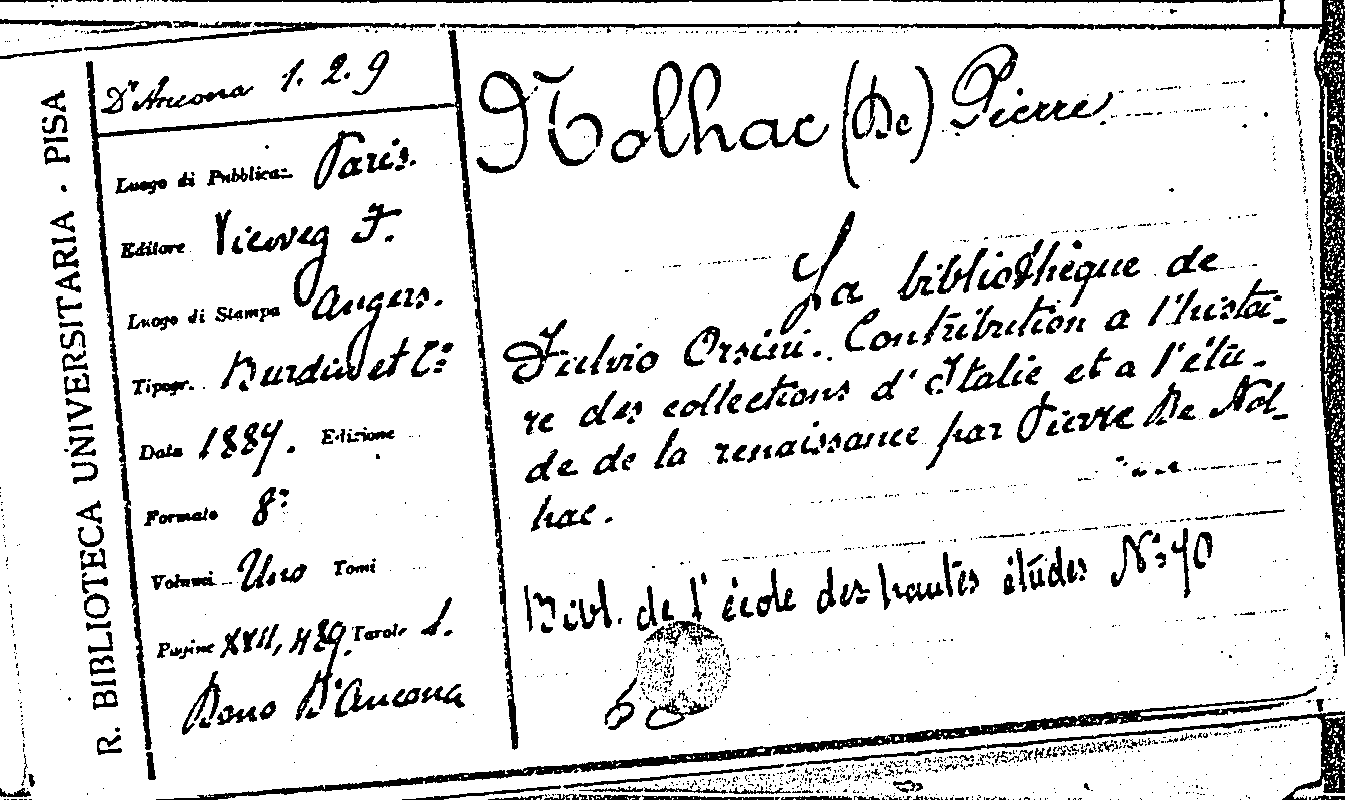 R. BIBLIOTECA UNIVERSITARIA . PISA
D'Ancona 1. 2. 9
Luogo di Pubblicaz. Paris.
Editore Vieweg F.
Luogo di Stampa Angers.
Tipogr. Burdin et C.ie
Data 1887. Edizione
Formato 8°
Volumi Uno Tomi
Pagine XVII, 489. Tavole 1.
Dono D'Ancona
Nolhac (De) Pierre
La bibliothèque de
Fulvio Orsini. Contribution a l'histoi-
re des collections d'Italie et a l'étu-
de de la renaissance par Pierre De Nol-
hac.
Bibl. de l'école des hautes études N° 70